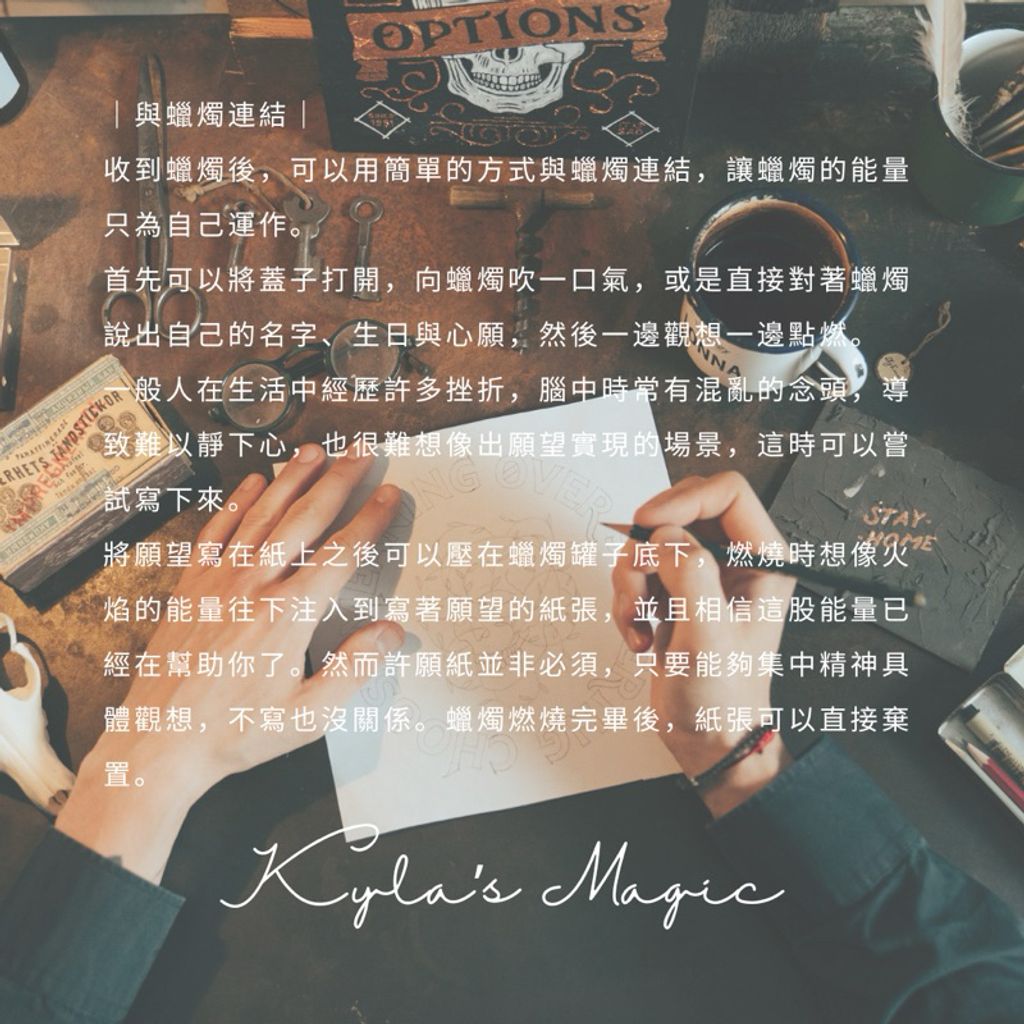 OPTIONS
SINCE 1991
｜與蠟燭連結｜
收到蠟燭後，可以用簡單的方式與蠟燭連結，讓蠟燭的能量
只為自己運作。
首先可以將蓋子打開，向蠟燭吹一口氣，或是直接對著蠟燭
說出自己的名字、生日與心願，然後一邊觀想一邊點燃。
一般人在生活中經歷許多挫折，腦中時常有混亂的念頭，導
致難以靜下心，也很難想像出願望實現的場景，這時可以嘗
試寫下來。
將願望寫在紙上之後可以壓在蠟燭罐子底下，燃燒時想像火
焰的能量往下注入到寫著願望的紙張，並且相信這股能量已
經在幫助你了。然而許願紙並非必須，只要能夠集中精神具
體觀想，不寫也沒關係。蠟燭燃燒完畢後，紙張可以直接棄
置。
STAY-
HOME
OVER
Kyla's Magic